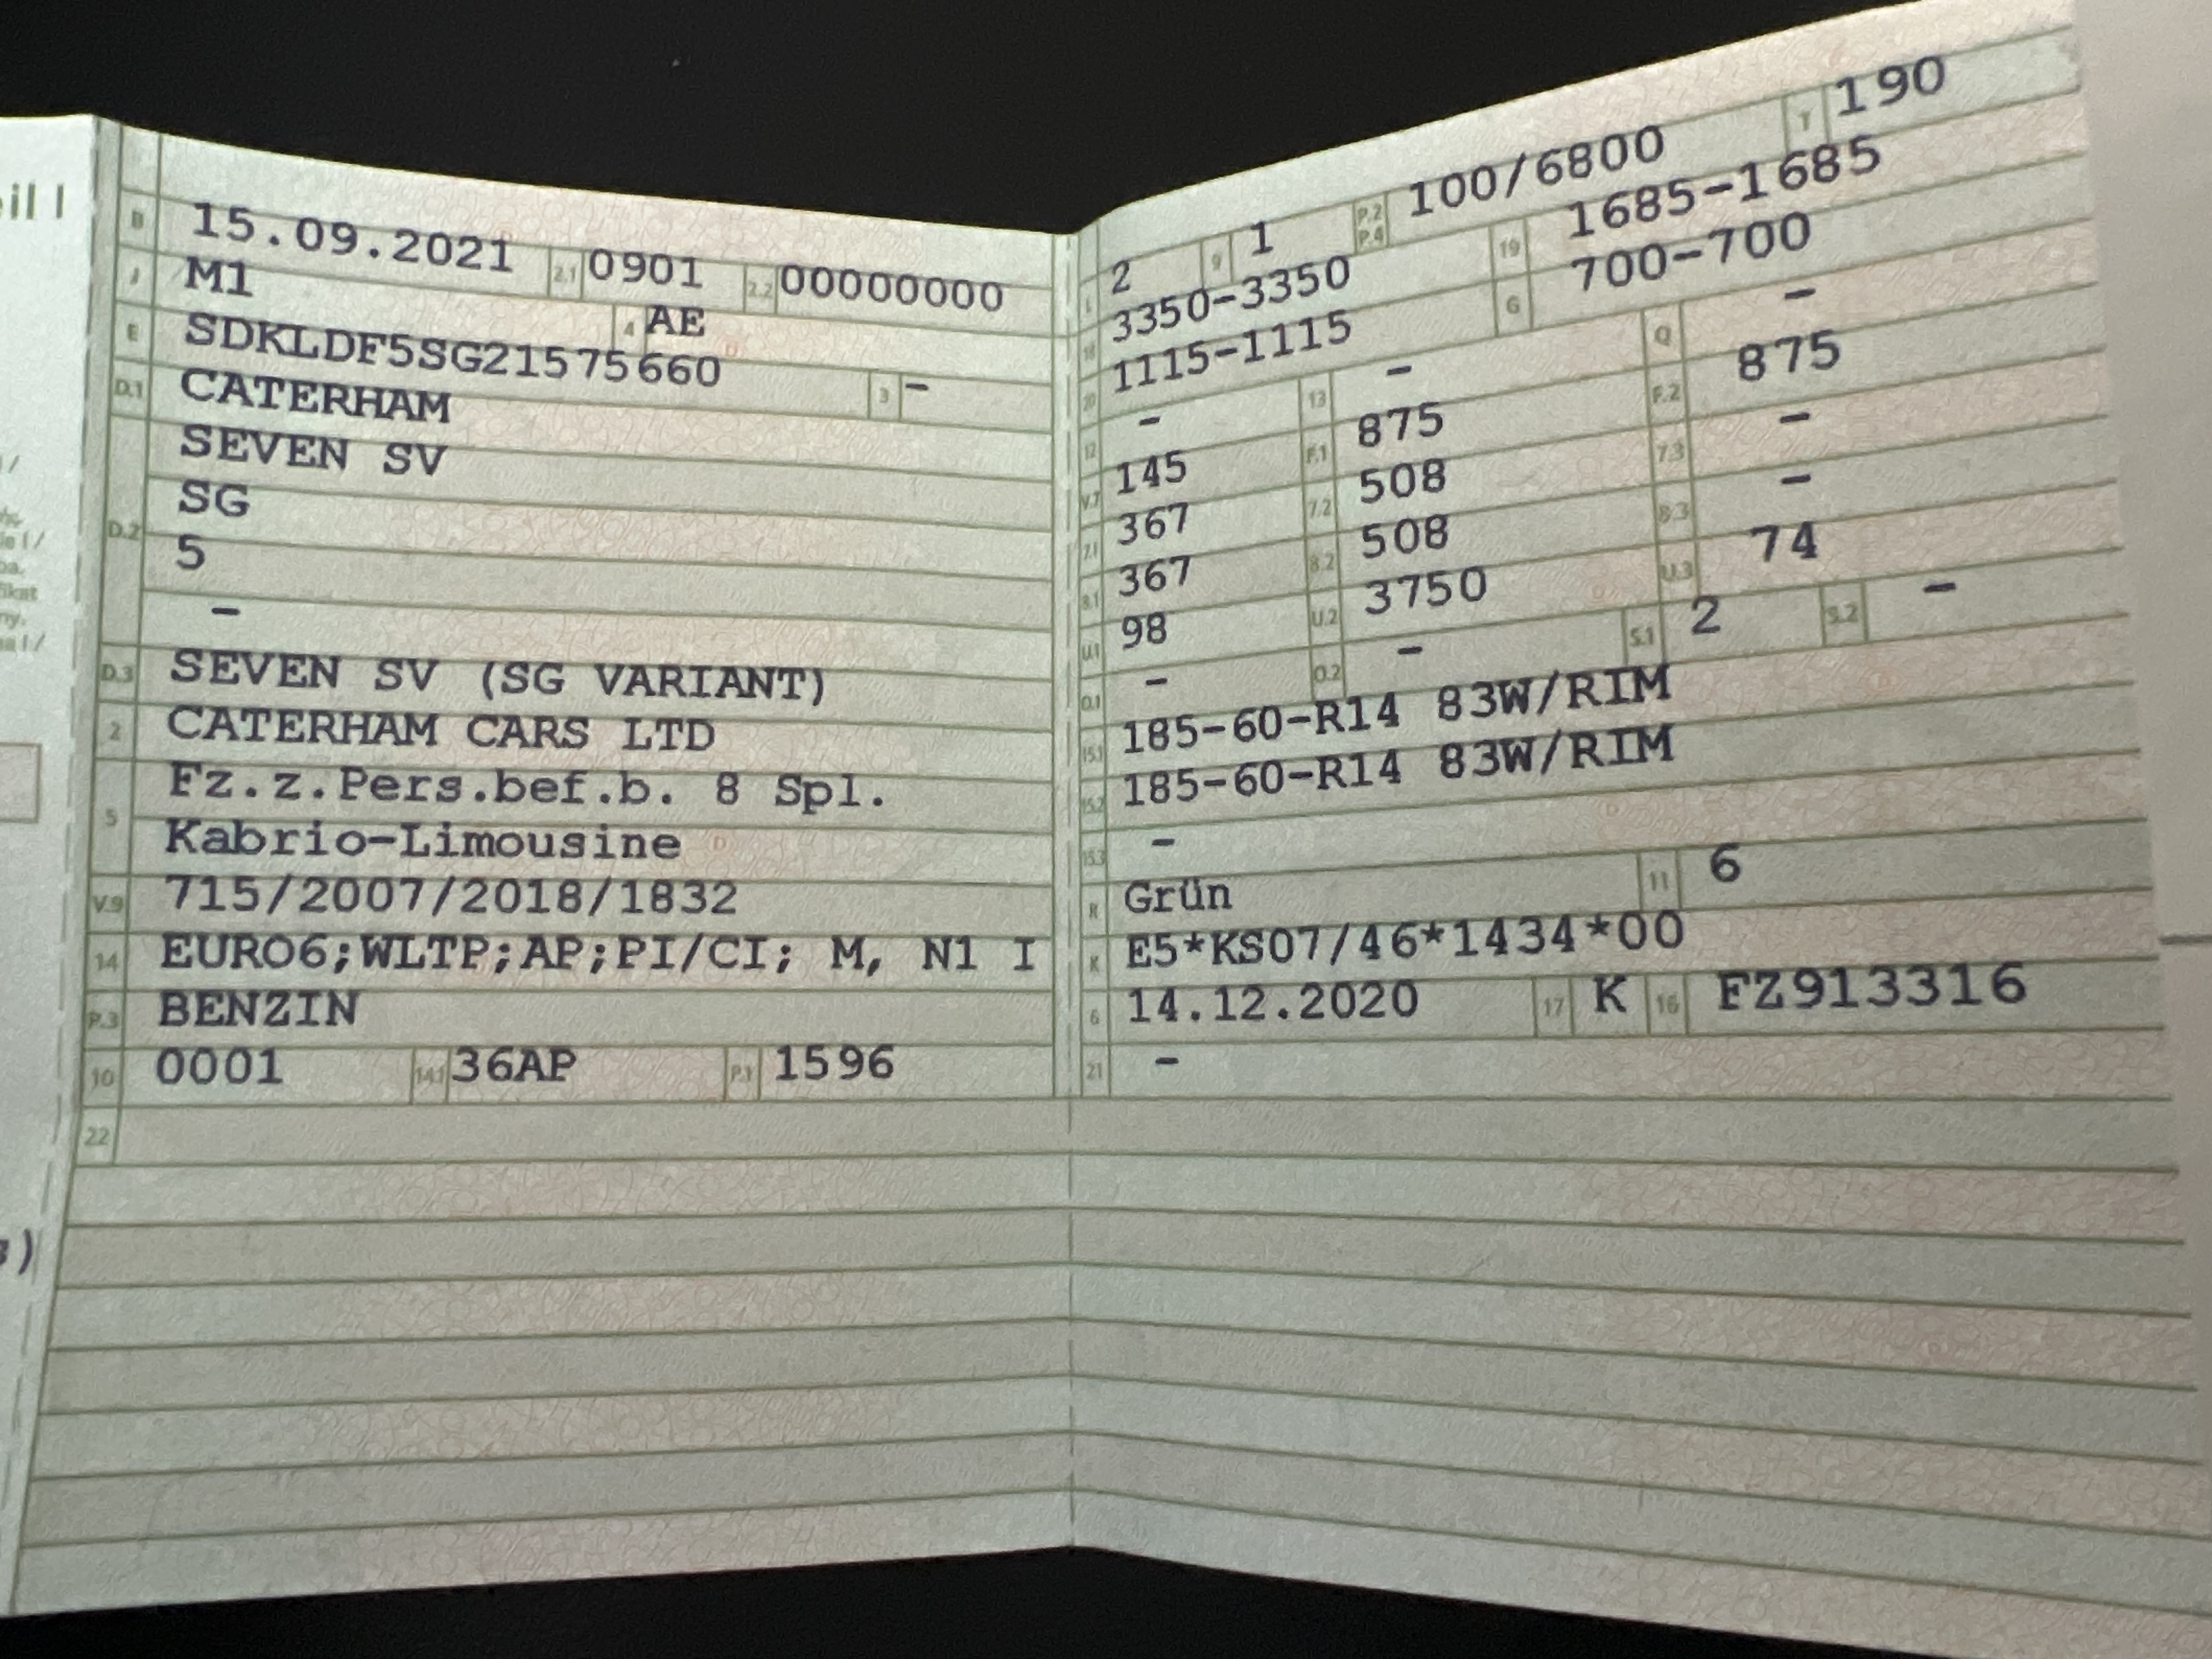 eil I
B 15.09.2021 2.1 0901 2.2 00000000
J M1 4 AE
E SDKLDF5SG21575660 3 -
D.1 CATERHAM
SEVEN SV
D.2 SG
5
-
D.3 SEVEN SV (SG VARIANT)
2 CATERHAM CARS LTD
5 Fz.z.Pers.bef.b. 8 Spl.
Kabrio-Limousine
V.9 715/2007/2018/1832
14 EURO6;WLTP;AP;PI/CI; M, N1 I
P.3 BENZIN
10 0001 14.1 36AP P.1 1596
22
L 2 9 1 P.2 P.4 100/6800 T 190
18 3350-3350 19 1685-1685
20 1115-1115 G 700-700
12 - 13 - Q -
V.7 145 F.1 875 F.2 875
7.1 367 7.2 508 7.3 -
8.1 367 8.2 508 8.3 -
U.1 98 U.2 3750 U.3 74
O.1 - O.2 - S.1 2 S.2 -
15.1 185-60-R14 83W/RIM
15.2 185-60-R14 83W/RIM
15.3 -
R Grün 11 6
K E5*KS07/46*1434*00
6 14.12.2020 17 K 16 FZ913316
21 -